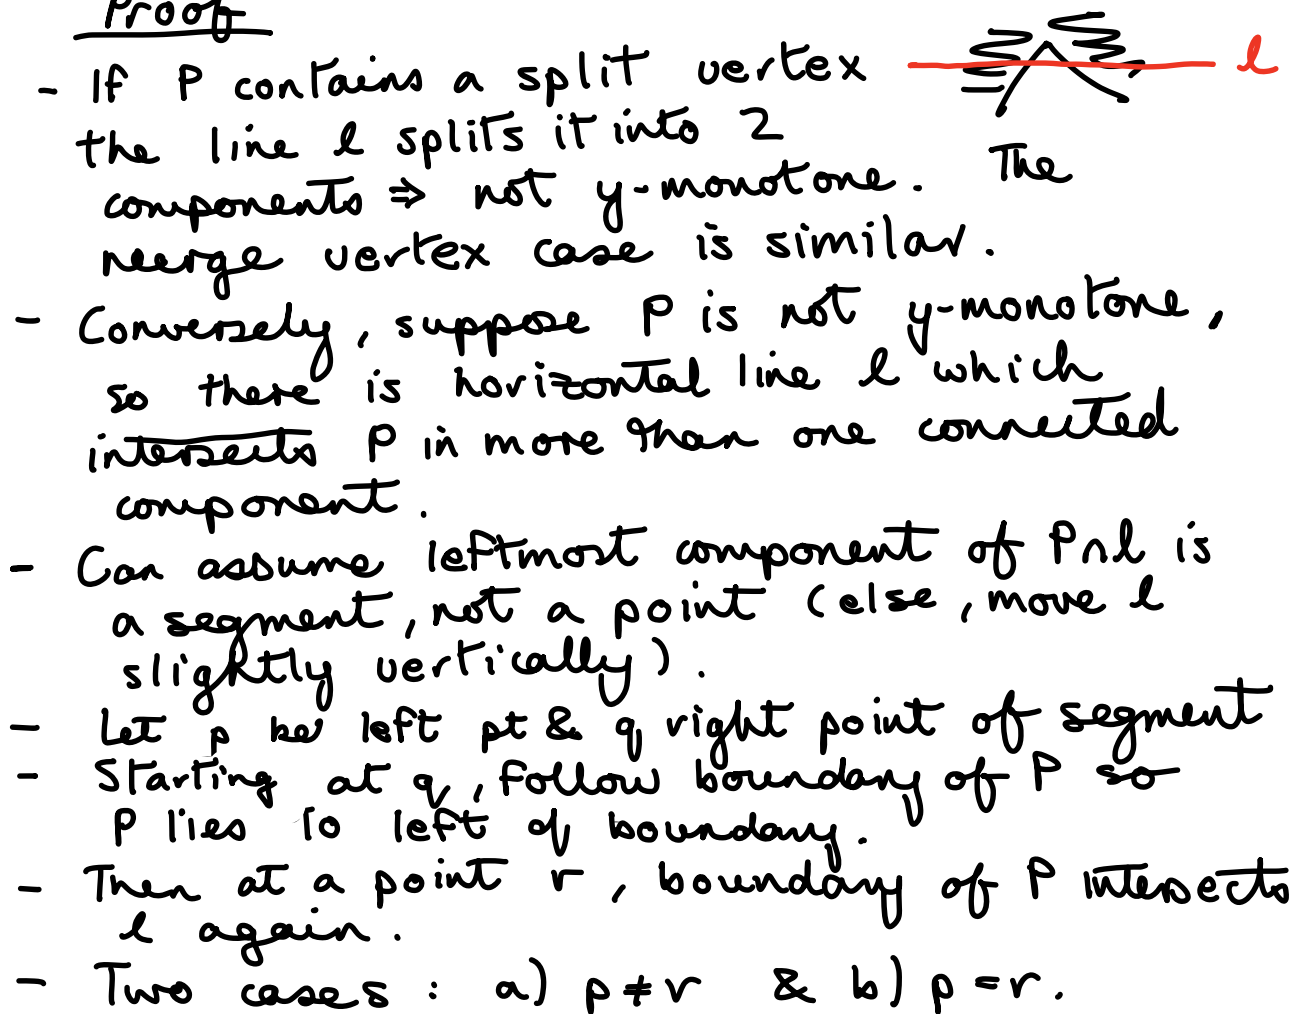 Proof
- If P contains a split vertex l
the line l splits it into 2
components ⇒ not y-monotone. The
merge vertex case is similar.
- Conversely, suppose P is not y-monotone,
so there is horizontal line l which
intersects P in more than one connected
component.
- Can assume leftmost component of P∩l is
a segment, not a point (else, move l
slightly vertically).
- Let p be left pt & q right point of segment
- Starting at q, follow boundary of P so
P lies to left of boundary.
- Then at a point r, boundary of P intersects
l again.
- Two cases: a) p ≠ r & b) p = r.